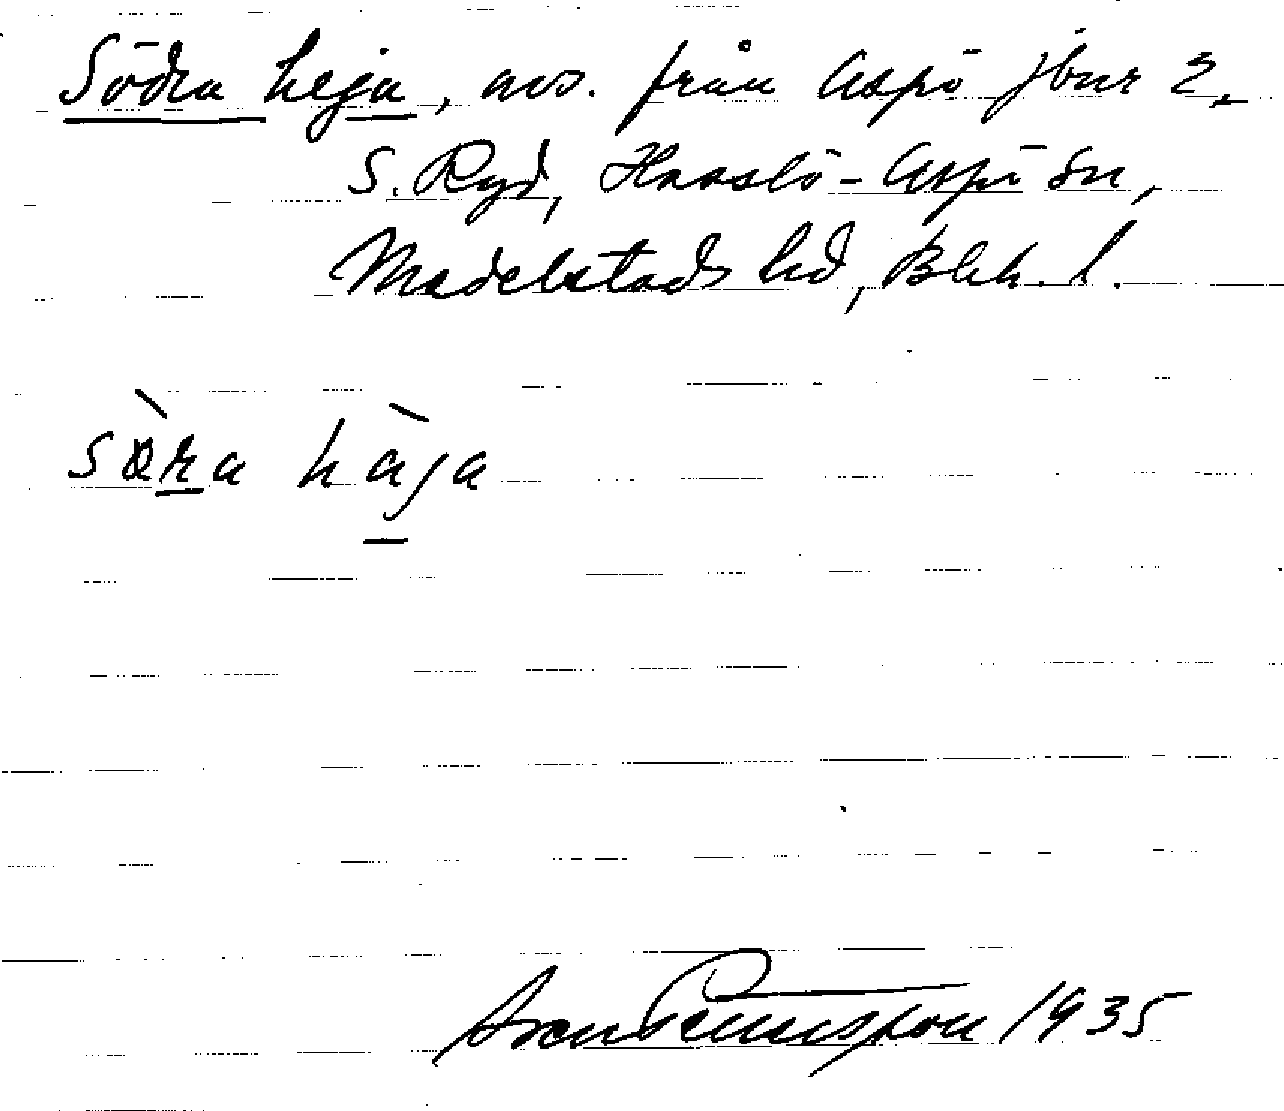 Södra heja, avs. från Aspö jbnr 2,
S. Ryd, Hasslö-Aspö sn,
Medelstads hd, Blek. l.
sòra hàja
1935